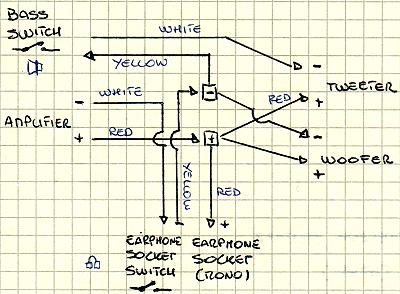 BASS
SWITCH
WHITE
YELLOW
-
TWEETER
+
RED
-
- WHITE
AMPLIFIER
+ RED
+
-
WOOFER
+
YELLOW
RED
-
+
EARPHONE EARPHONE
SOCKET SOCKET
SWITCH (MONO)